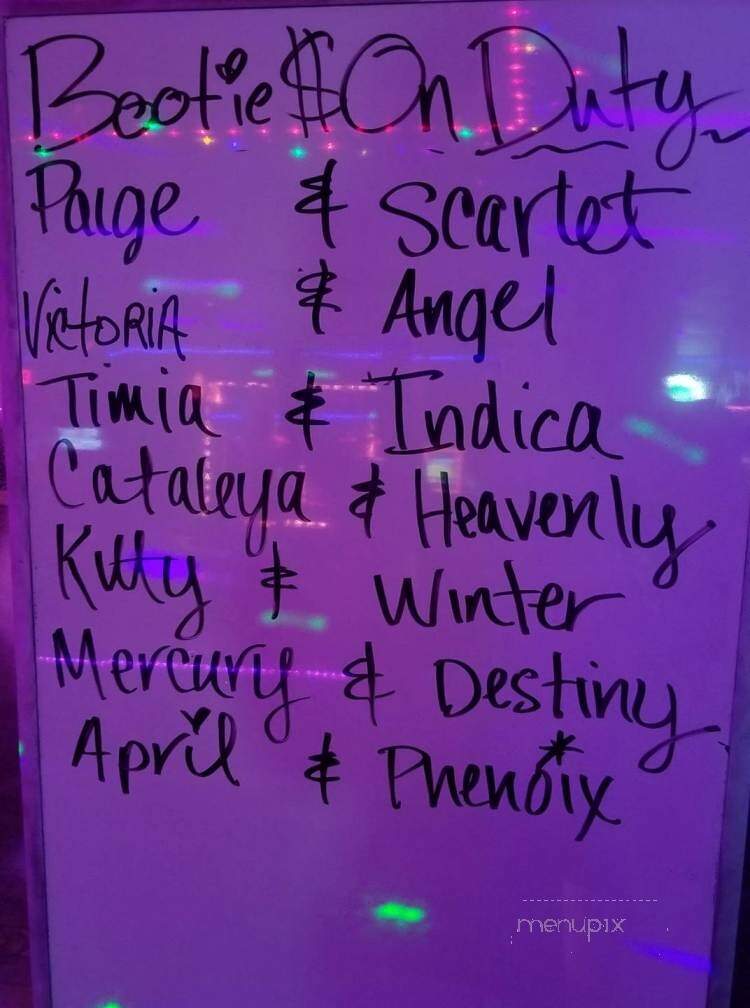 Bootie$ On Duty
Paige & Scarlet
VictoRiA & Angel
Timia & Indica
Cataleya & Heavenly
Kitty & Winter
Mercury & Destiny
April & Phenoix
menupix